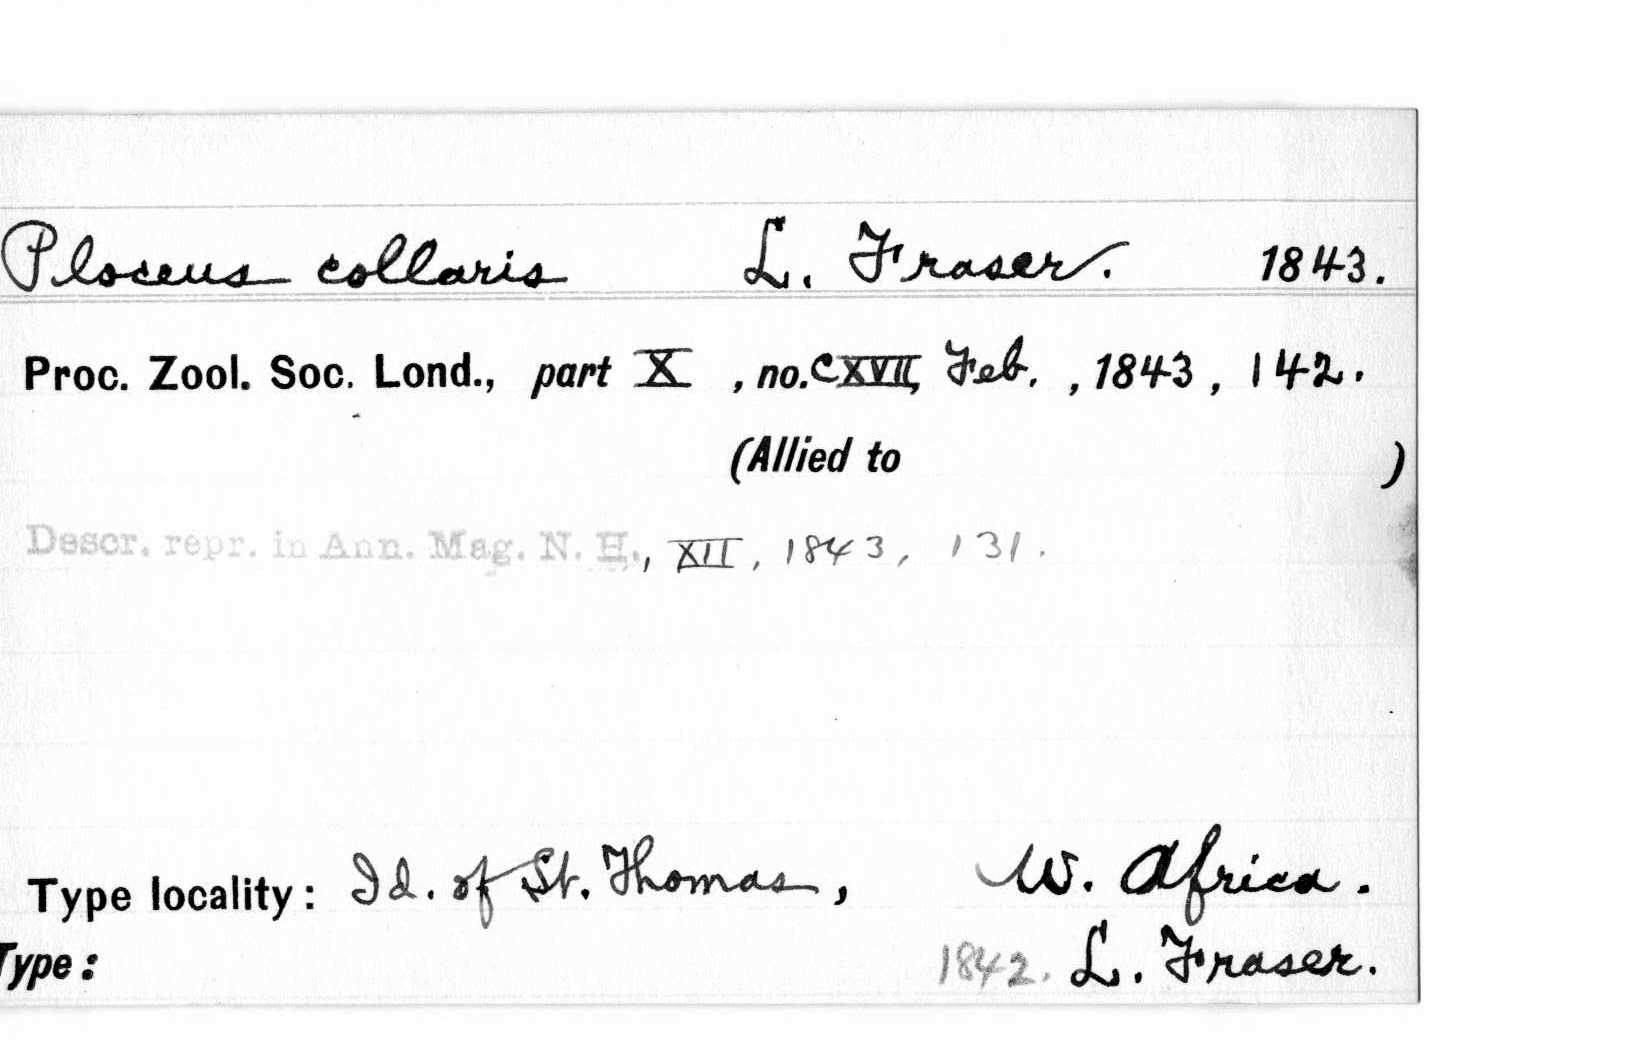 Ploceus collaris L. Fraser. 1843.
Proc. Zool. Soc. Lond., part X, no. CXVII, Feb., 1843, 142.
(Allied to )
Descr. repr. in Ann. Mag. N. H., XII, 1843, 131.
Type locality: Id. of St. Thomas, W. Africa.
Type: 1842. L. Fraser.